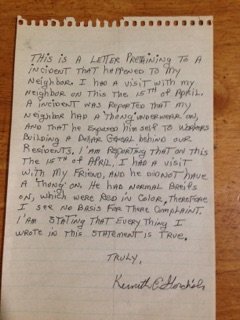 THIS IS A LETTER PRETAINING TO A
INCIDENT THAT HAPPENED TO MY
NEIGHBOR. I HAD A VISIT WITH MY
NEIGHBOR ON THIS THE 15TH OF APRIL.
A INCIDENT WAS REPORTED THAT MY
NEIGHBOR HAD A THONG UNDERWEAR ON,
AND THAT HE EXPOSED HIM SELF TO WORKERS
BUILDING A DOLLAR GENERAL BEHIND OUR
RESIDENTS. I'AM REPORTING THAT ON THIS
THE 15TH OF APRIL, I HAD A VISIT
WITH MY FRIEND, AND HE DID NOT HAVE
A THONG ON. HE HAD NORMAL BREIFS
ON, WHICH WERE RED IN COLOR, THEREFORE
I SEE NO BASIS FOR THERE COMPLAINT.
I'AM STATING THAT EVERYTHING I
WROTE IN THIS STATEMENT IS TRUE.
TRULY,
Kenneth E